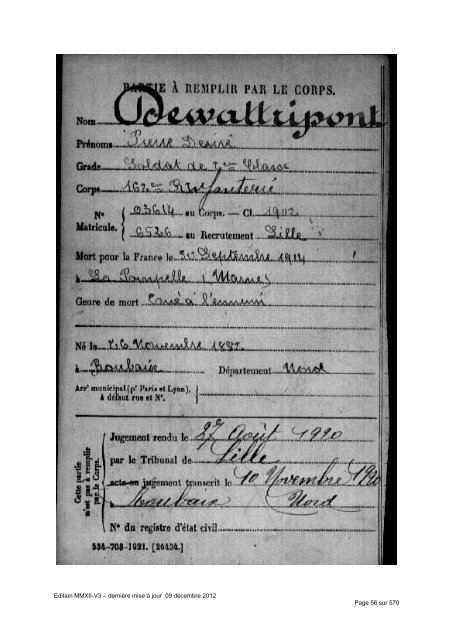 PARTIE À REMPLIR PAR LE CORPS.
Nom Dewattripont
Prénoms Pierre Desiré
Grade Soldat de 2eme Classe
Corps 162eme R. Infanterie
N° Matricule. { 03614 au Corps. — Cl. 1902
6526 au Recrutement Lille
Mort pour la France le 30 Septembre 1914
à La Pompelle (Marne)
Genre de mort Tué à l'ennemi
Né le 26 Novembre 1882
à Roubaix Département Nord
Arr' municipal (p' Paris et Lyon),
à défaut rue et N°.
Cette partie n'est pas à remplir par le Corps.
Jugement rendu le 27 Août 1920
par le Tribunal de Lille
acte ou jugement transcrit le 10 Novembre 1920
à Roubaix Nord
N° du registre d'état civil
534-708-1921. [26434.]
Edition MMXII-V3 – dernière mise à jour 09 décembre 2012
Page 56 sur 570